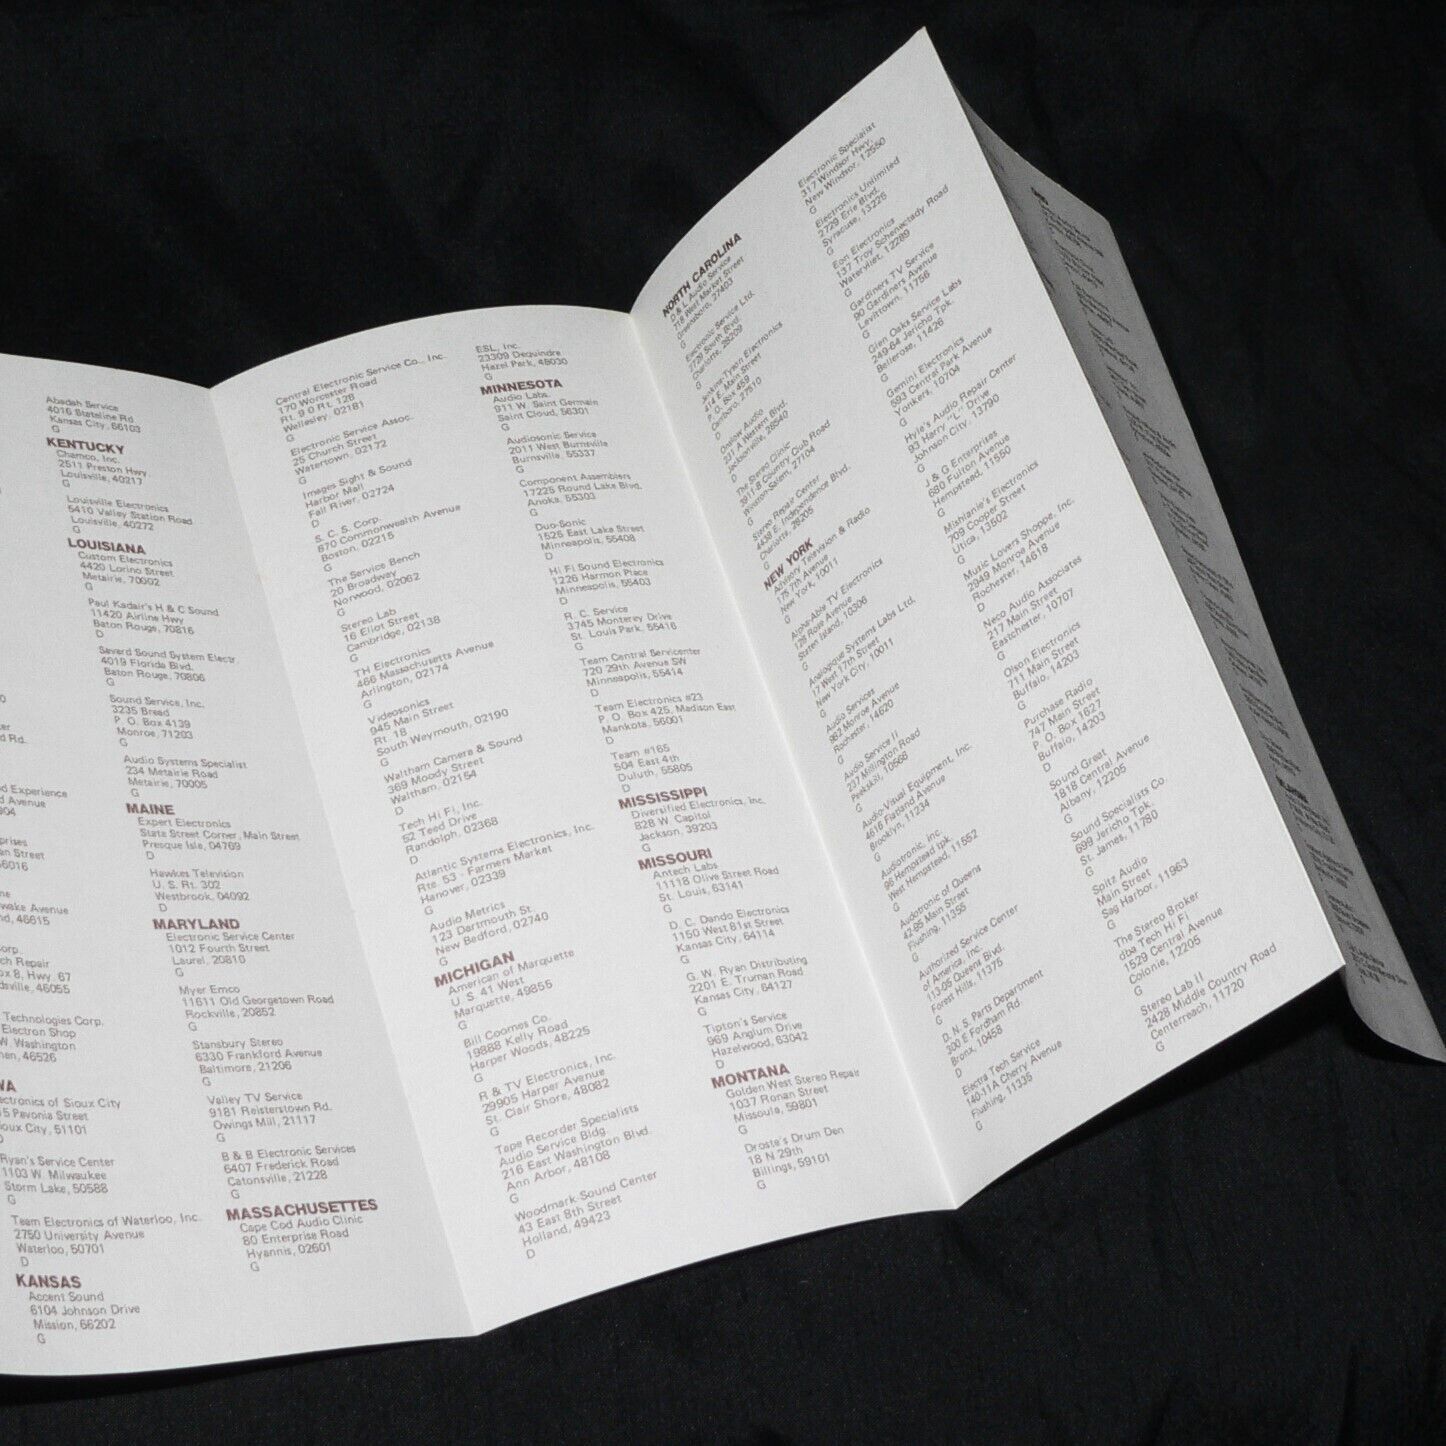 ter
d Rd.
d Experience
d Avenue
904
prises
an Street
6016
ne
wake Avenue
nd, 46615
orp.
ch Repair
ox 8, Hwy. 67
dsville, 46055
Technologies Corp.
Electron Shop
W Washington
hen, 46526
WA
ectronics of Sioux City
15 Pavonia Street
ioux City, 51101
D
Ryan's Service Center
1103 W. Milwaukee
Storm Lake, 50588
G
Team Electronics of Waterloo, Inc.
2750 University Avenue
Waterloo, 50701
D
KANSAS
Accent Sound
6104 Johnson Drive
Mission, 66202
G
Abadah Service
4016 Stateline Rd
Kansas City, 66103
G
KENTUCKY
Chamco, Inc.
2511 Preston Hwy
Louisville, 40217
G
Louisville Electronics
5410 Valley Station Road
Louisville, 40272
G
LOUISIANA
Custom Electronics
4420 Lorino Street
Metairie, 70002
G
Paul Kadair's H & C Sound
11420 Airline Hwy
Baton Rouge, 70816
D
Savard Sound System Electr.
4019 Florida Blvd.
Baton Rouge, 70806
G
Sound Service, Inc.
3235 Bread
P. O. Box 4139
Monroe, 71203
G
Audio Systems Specialist
234 Metairie Road
Metairie, 70005
G
MAINE
Expert Electronics
State Street Corner, Main Street
Presque Isle, 04769
D
Hawkes Television
U. S. Rt. 302
Westbrook, 04092
D
MARYLAND
Electronic Service Center
1012 Fourth Street
Laurel, 20810
G
Myer Emco
11611 Old Georgetown Road
Rockville, 20852
G
Stansbury Stereo
6330 Frankford Avenue
Baltimore, 21206
G
Valley TV Service
9181 Reisterstown Rd.
Owings Mill, 21117
G
B & B Electronic Services
6407 Frederick Road
Catonsville, 21228
G
MASSACHUSETTES
Cape Cod Audio Clinic
80 Enterprise Road
Hyannis, 02601
G
Central Electronic Service Co., Inc.
170 Worcester Road
Rt. 9 0 Rt. 128
Wellesley, 02181
G
Electronic Service Assoc.
25 Church Street
Watertown, 02172
G
Images Sight & Sound
Harbor Mall
Fall River, 02724
D
S. C. S. Corp.
870 Commonwealth Avenue
Boston, 02215
G
The Service Bench
20 Broadway
Norwood, 02062
G
Stereo Lab
16 Eliot Street
Cambridge, 02138
G
TH Electronics
466 Massachusetts Avenue
Arlington, 02174
G
Videosonics
945 Main Street
Rt. 18
South Weymouth, 02190
G
Waltham Camera & Sound
369 Moody Street
Waltham, 02154
D
Tech Hi Fi, Inc.
52 Teed Drive
Randolph, 02368
D
Atlantic Systems Electronics, Inc.
Rte. 53 - Farmers Market
Hanover, 02339
G
Audio Metrics
123 Dartmouth St.
New Bedford, 02740
G
MICHIGAN
American of Marquette
U. S. 41 West
Marquette, 49855
G
Bill Coomes Co.
19888 Kelly Road
Harper Woods, 48225
G
R & TV Electronics, Inc.
29905 Harper Avenue
St. Clair Shore, 48082
G
Tape Recorder Specialists
Audio Service Bldg.
216 East Washington Blvd.
Ann Arbor, 48108
G
Woodmark Sound Center
43 East 8th Street
Holland, 49423
D
ESL, Inc.
23309 Dequindre
Hazel Park, 48030
G
MINNESOTA
Audio Labs.
911 W. Saint Germain
Saint Cloud, 56301
G
Audiosonic Service
2011 West Burnsville
Burnsville, 55337
G
Component Assemblers
17225 Round Lake Blvd.
Anoka, 55303
G
Duo-Sonic
1525 East Lake Street
Minneapolis, 55408
D
Hi Fi Sound Electronics
1226 Harmon Place
Minneapolis, 55403
D
R. C. Service
3745 Monterey Drive
St. Louis Park, 55416
G
Team Central Servicenter
720 29th Avenue SW
Minneapolis, 55414
D
Team Electronics #23
P. O. Box 425, Madison East
Mankota, 56001
D
Team #165
504 East 4th
Duluth, 55805
D
MISSISSIPPI
Diversified Electronics, Inc.
828 W. Capitol
Jackson, 39203
G
MISSOURI
Antech Labs
11118 Olive Street Road
St. Louis, 63141
G
D. C. Dando Electronics
1150 West 81st Street
Kansas City, 64114
G
G. W. Ryan Distributing
2201 E. Truman Road
Kansas City, 64127
G
Tipton's Service
969 Anglum Drive
Hazelwood, 63042
D
MONTANA
Golden West Stereo Repair
1037 Ronan Street
Missoula, 59801
G
Droste's Drum Den
18 N 29th
Billings, 59101
G
NORTH CAROLINA
D & L Audio Service
718 West Market Street
Greensboro, 27403
G
Electronic Service Ltd.
2729 South Blvd.
Charlotte, 28209
G
Jenkins-Tyson Electronics
414 E. Main Street
P. O. Box 459
Carrboro, 27510
D
Onslow Audio
231 A Western Blvd.
Jacksonville, 28540
D
The Stereo Clinic
3911-B Country Club Road
Winston-Salem, 27104
G
Stereo Repair Center
4438 E. Independence Blvd.
Charlotte, 28205
G
NEW YORK
Advisory Television & Radio
175 7th Avenue
New York, 10011
G
Alpha-Able TV Electronics
128 Rose Avenue
Staten Island, 10306
G
Analogique Systems Labs Ltd.
17 West 17th Street
New York City, 10011
G
Audio Services
962 Monroe Avenue
Rochester, 14620
G
Audio Service II
237 Millington Road
Peekskill, 10566
G
Audio-Visual Equipment, Inc.
4616 Flatland Avenue
Brooklyn, 11234
G
Audiotronic, inc.
96 Hempstead tpk.
West Hempstead, 11552
G
Audotronic of Queens
42-85 Main Street
Flushing, 11355
G
Authorized Service Center
of America, Inc.
113-05 Queens Blvd.
Forest Hills, 11375
G
D. N. S. Parts Department
300 E Fordham Rd.
Bronx, 10458
D
Electra Tech Service
140-11A Cherry Avenue
Flushing, 11335
G
Electronic Specialist
317 Windsor Hwy.
New Windsor, 12550
G
Electronics Unlimited
2729 Erie Blvd.
Syracuse, 13225
G
Eon Electronics
137 Troy Schenactady Road
Watervliet, 12289
G
Gardiners TV Service
90 Gardiners Avenue
Levittown, 11756
G
Glen Oaks Service Labs
249-64 Jericho Tpk.
Bellerose, 11426
G
Gemini Electronics
693 Central Park Avenue
Yonkers, 10704
G
Hyle's Audio Repair Center
93 Harry "L" Drive
Johnson City, 13790
G
J & G Enterprises
680 Fulton Avenue
Hempstead, 11550
G
Mishianie's Electronics
709 Cooper Street
Utica, 13502
G
Music Lovers Shoppe, Inc.
2949 Monroe Avenue
Rochester, 14618
D
Neco Audio Associates
217 Main Street
Eastchester, 10707
G
Olson Electronics
711 Main Street
Buffalo, 14203
G
Purchase Radio
747 Main Street
P. O. Box 1027
Buffalo, 14203
D
Sound Great
1818 Central Avenue
Albany, 12205
G
Sound Specialists Co.
699 Jericho Tpk.
St. James, 11780
G
Spitz Audio
Main Street
Sag Harbor, 11963
G
The Stereo Broker
dba Tech Hi Fi
1529 Central Avenue
Colonie, 12205
G
Stereo Lab II
2428 Middle Country Road
Centerreach, 11720
G